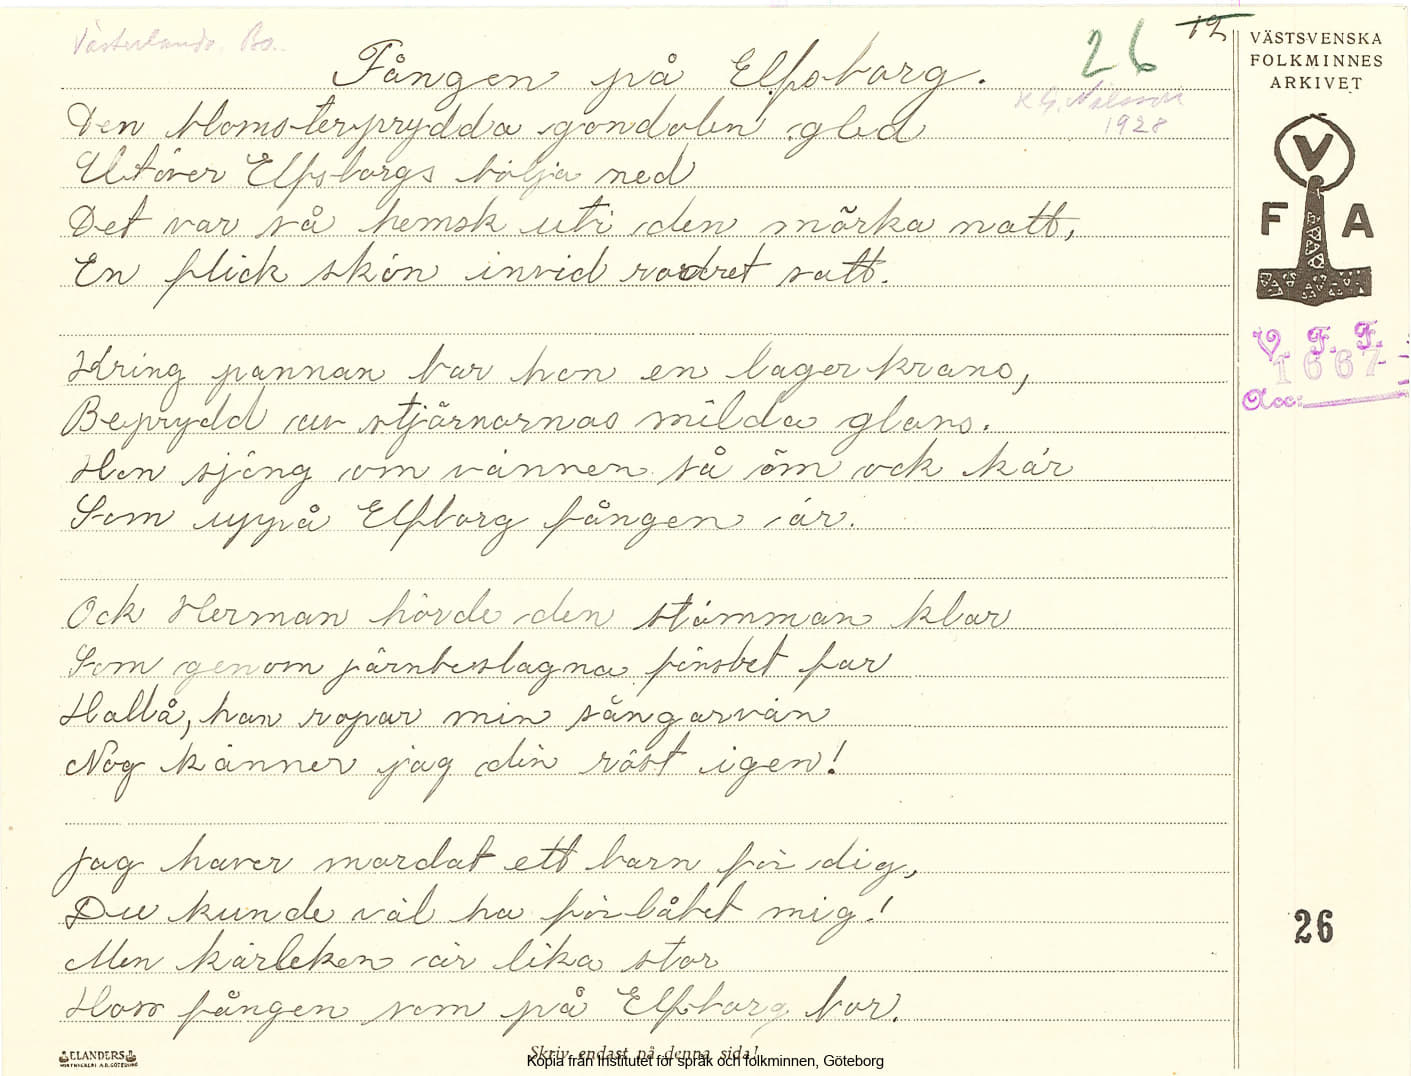 Västerlanda. Bo.
26 12
Fången på Elfsborg.
K G. Nilsson
1928
Den blomsterprydda gondolen gled
Utöver Elfsborgs bölja ned
Det var så hemsk uti den mörka natt,
En flick skön invid rodret satt.
Kring pannan bar hon en lagerkrans,
Beprydd av stjärnornas milda glans.
Hon sjöng om vännen så öm ock kär
Som uppå Elfborg fången är.
Ock Herman hörde den stämman klar
Som genom järnbeslagna fönstret far
Hallå, han ropar min sångarvän
Nog känner jag din röst igen!
Jag haver mördat ett barn för dig,
Du kunde väl ha förlåtet mig!
Men kärleken är lika stor
Hoss fången som på Elfsborg bor.
VÄSTSVENSKA
FOLKMINNES
ARKIVET
V
F A
V. F. F.
1667
Acc:
26
ELANDERS
BOKTRYCKERI A.B. GÖTEBORG
Skriv endast på denna sida!
Kopia från Institutet för språk och folkminnen, Göteborg